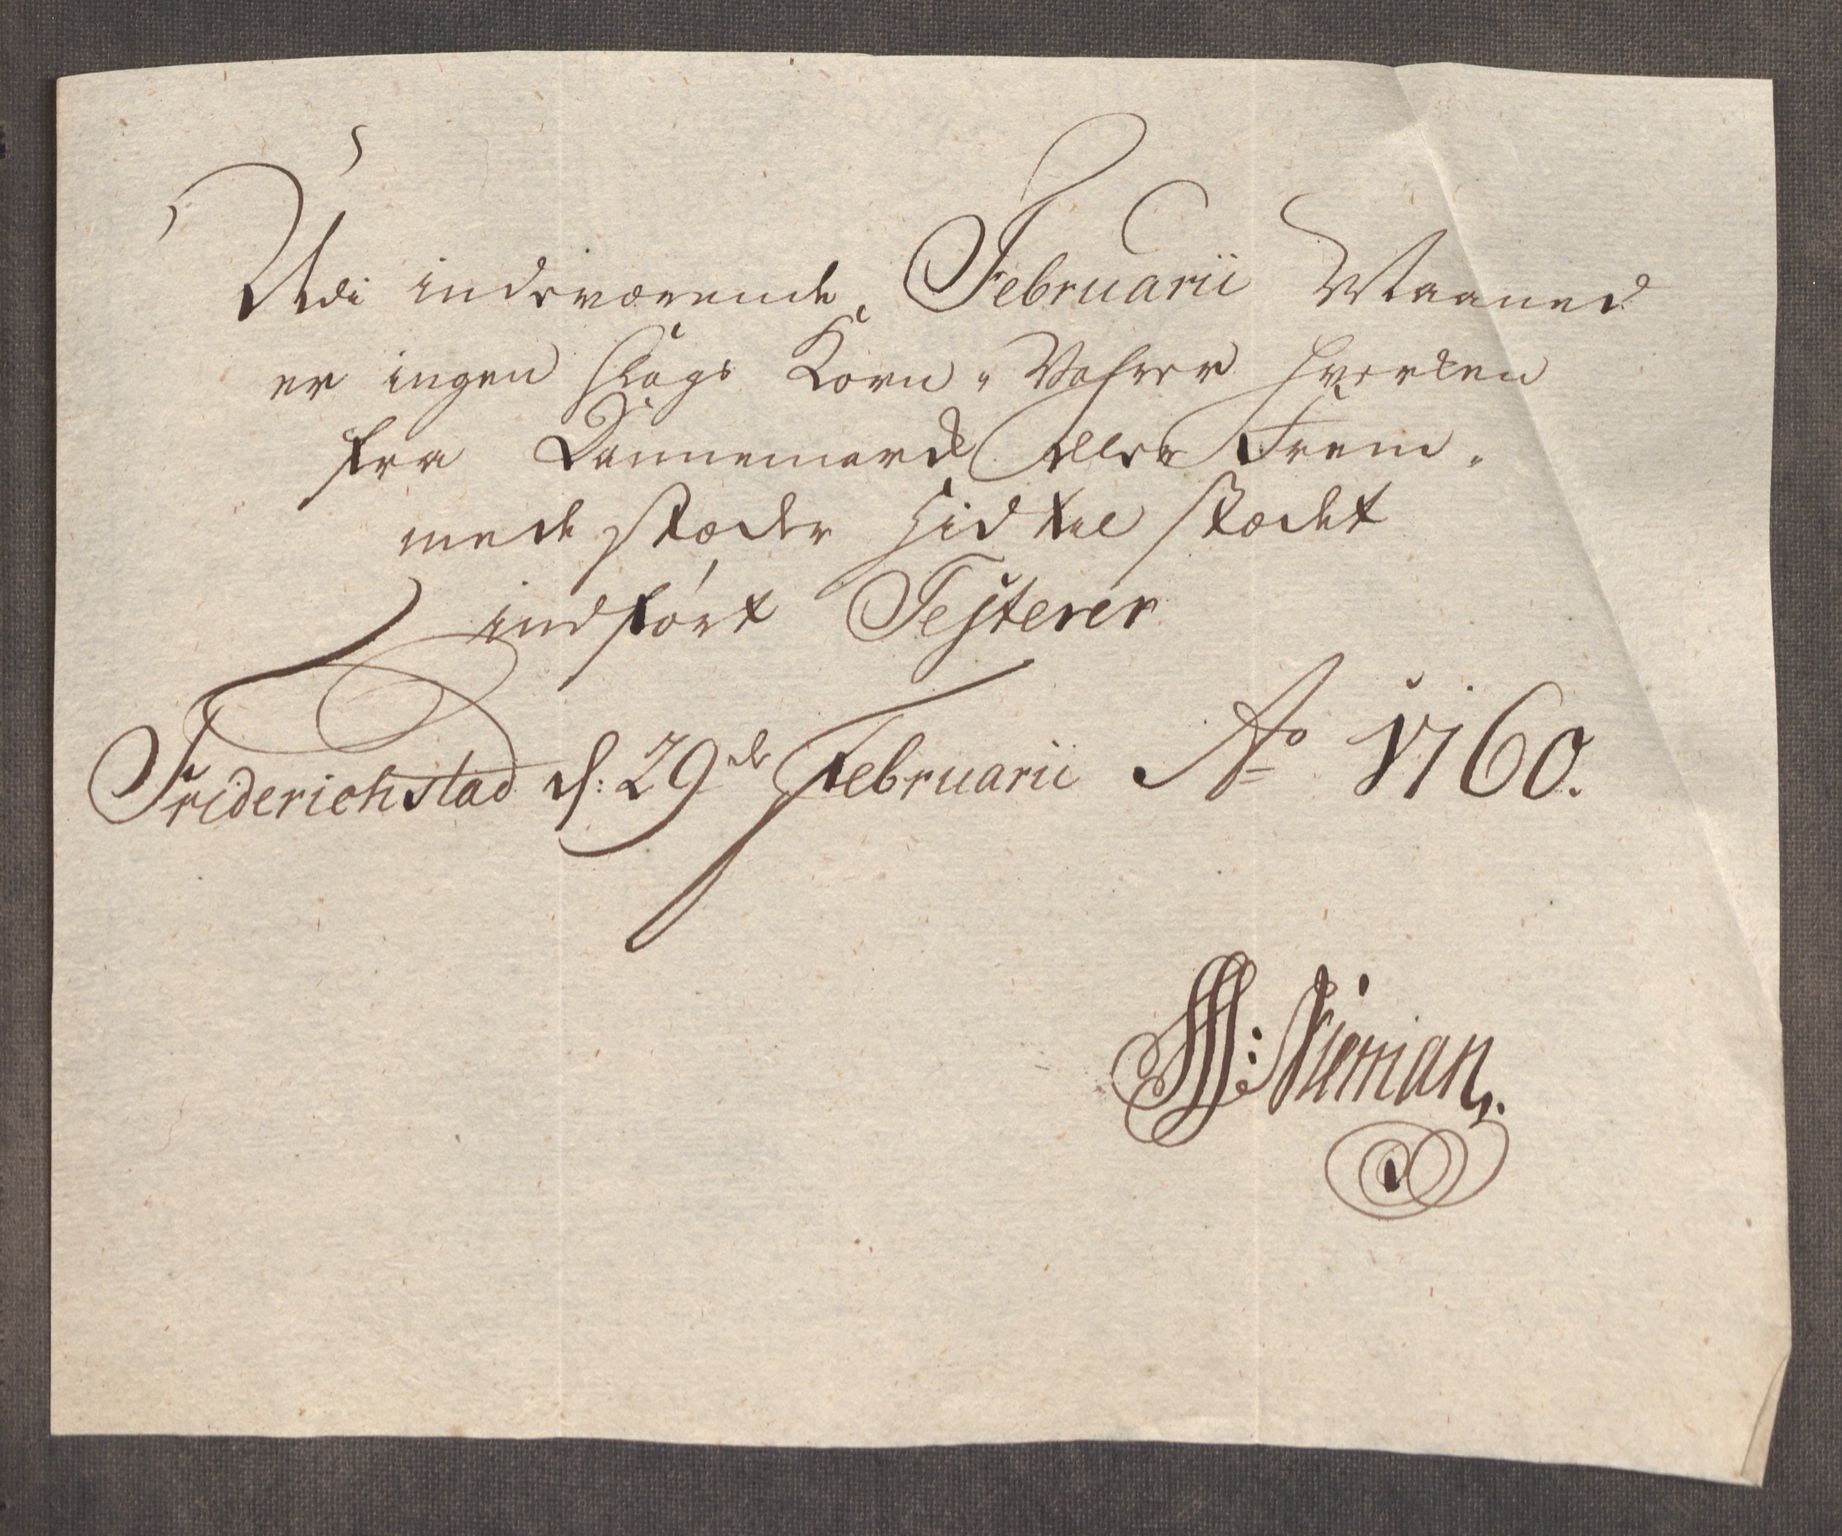 Udi indeværende Februarii Maaned
er ingen slags Korn-Vahrer hverken
fra Dannemarck eller Frem-
mede stæder hid til stædet
indført Testerer
Friderichstad d: 29de Februarii Ao 1760.
Nieman.